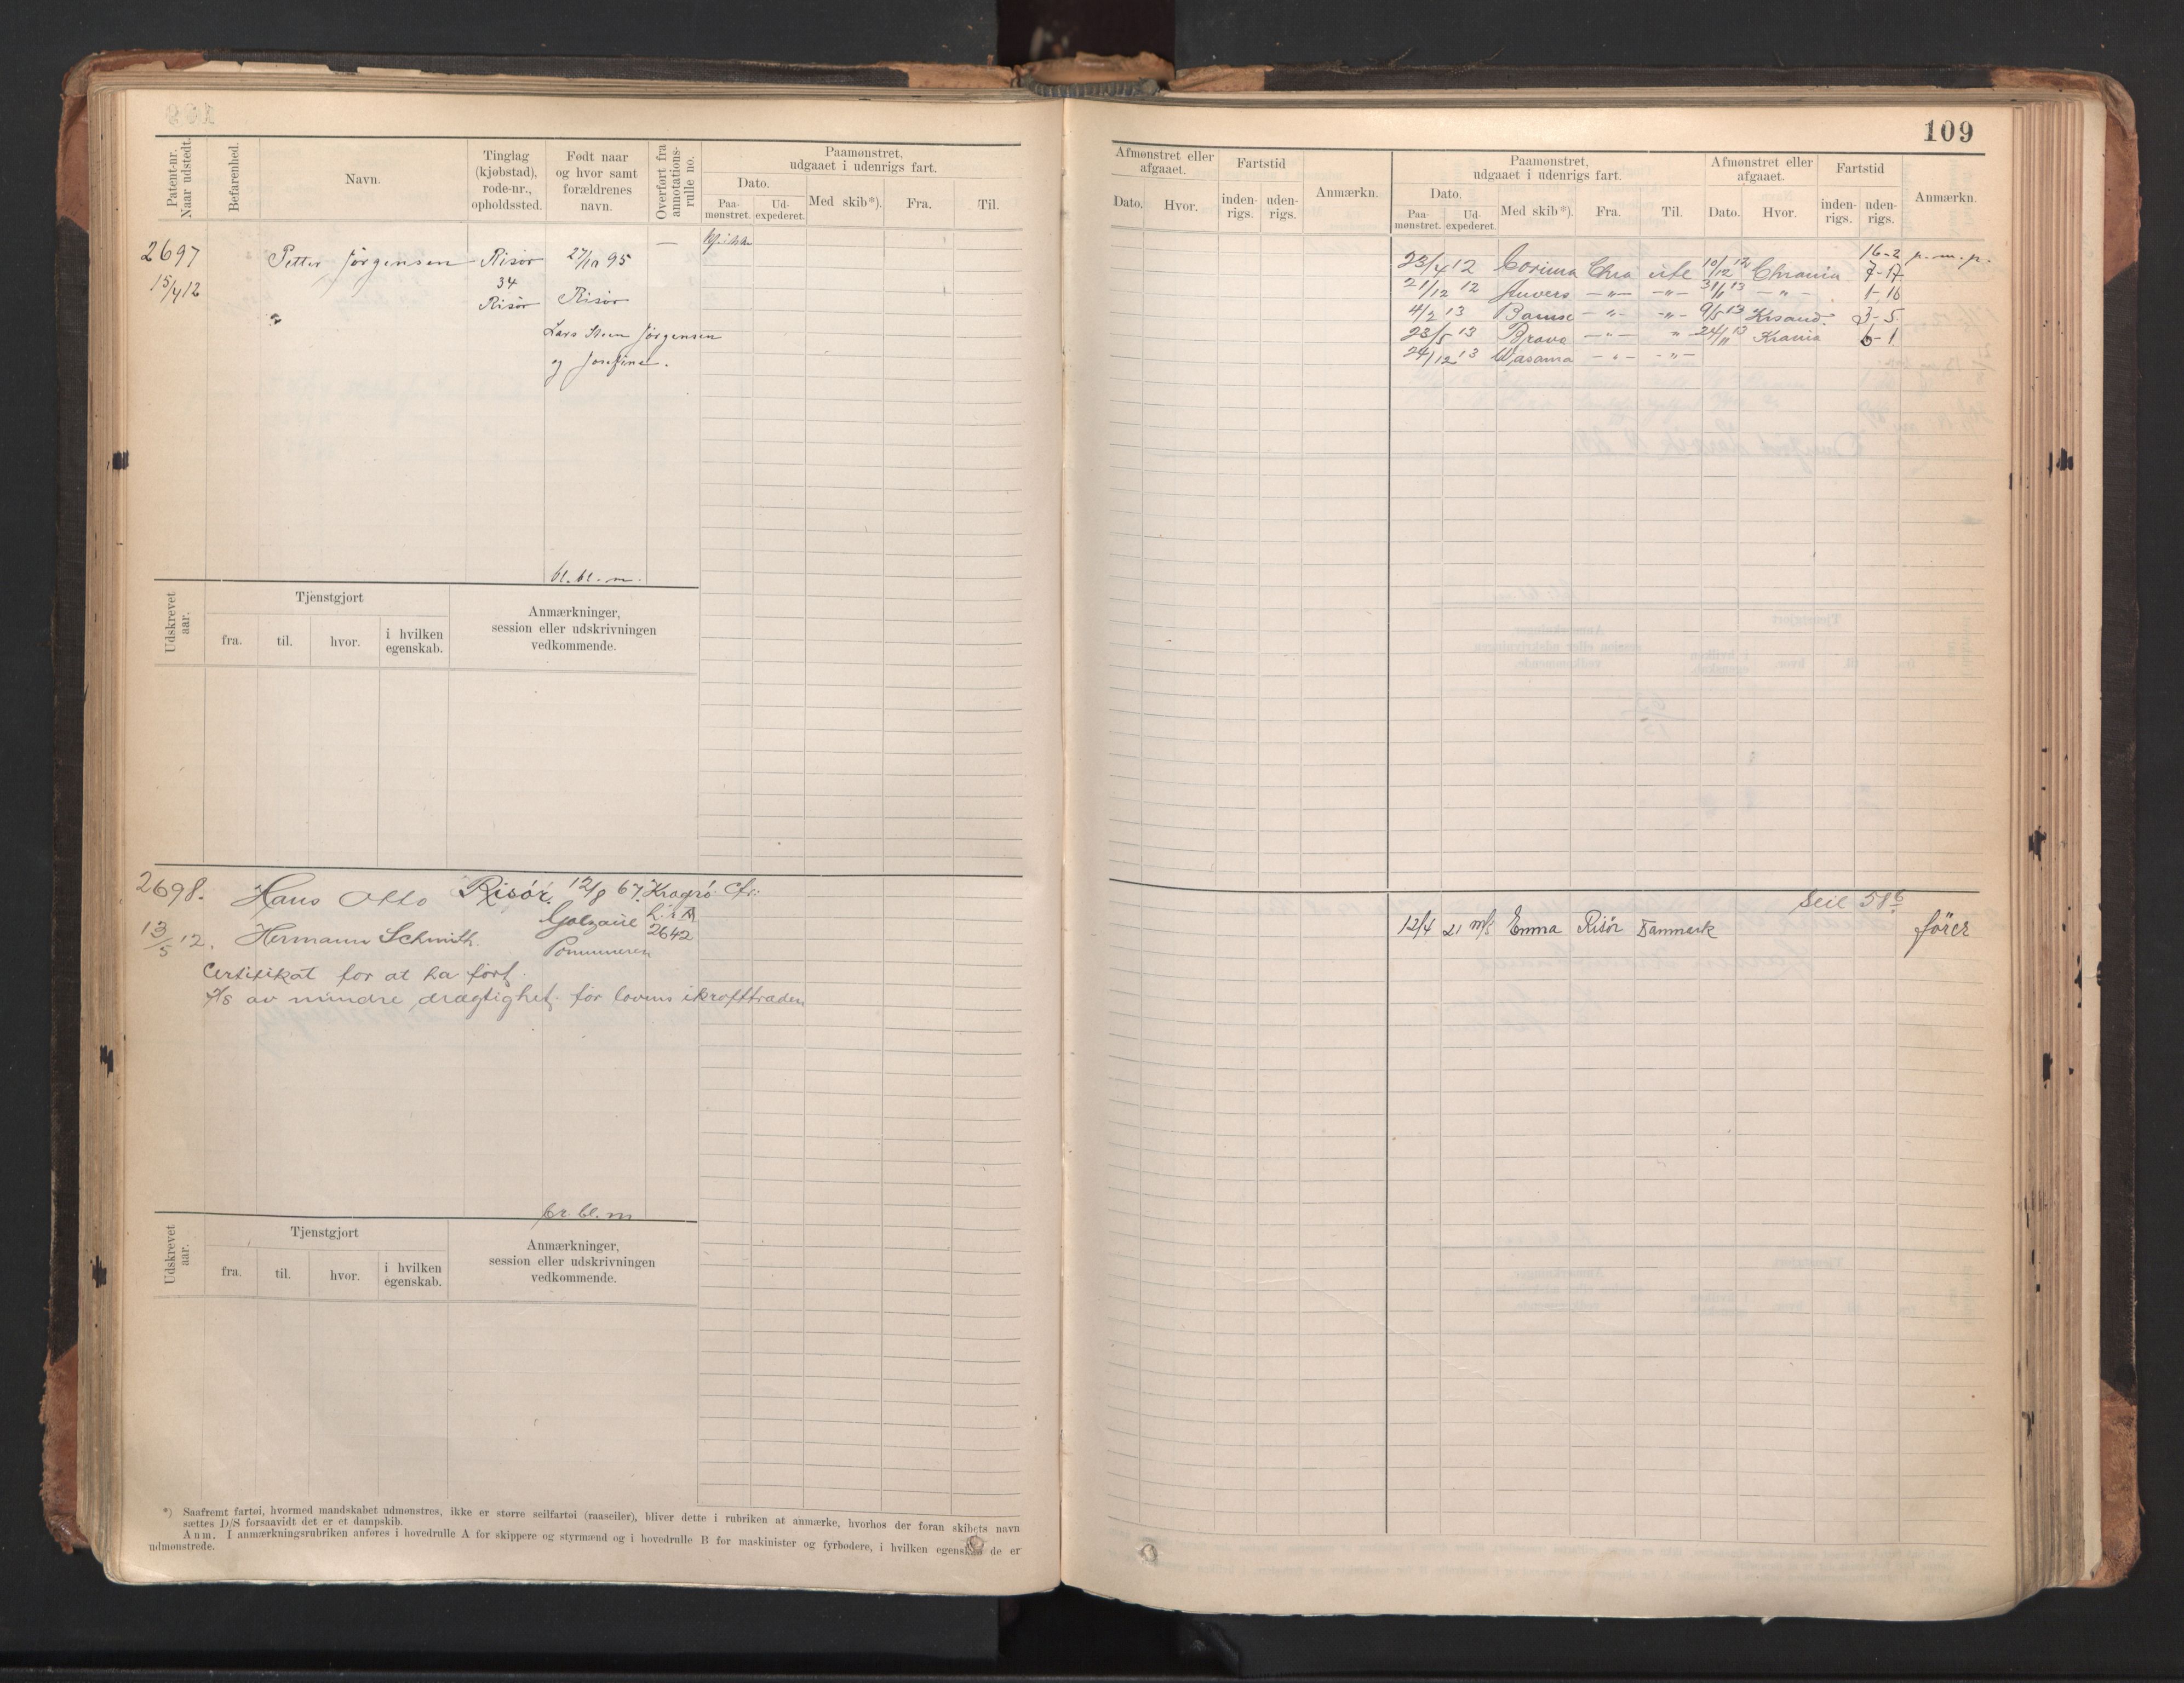 109
Patent-nr. Naar udstedt.
Befarenhed.
Navn.
Tinglag (kjøbstad), rode-nr., opholdssted.
Født naar og hvor samt forældrenes navn.
Overført fra annotations-rulle no.
Paamønstret, udgaaet i udenrigs fart.
Dato.
Paa-mønstret.
Ud-expederet.
Med skib*).
Fra.
Til.
Afmønstret eller afgaaet.
Dato.
Hvor.
Fartstid
inden-rigs.
uden-rigs.
Anmærkn.
Paamønstret, udgaaet i udenrigs fart.
Dato.
Paa-mønstret.
Ud-expederet.
Med skib*).
Fra.
Til.
Afmønstret eller afgaaet.
Dato.
Hvor.
Fartstid
inden-rigs.
uden-rigs.
Anmærkn.
2697 Petter Jørgensen Risør 27/10 95 —
15/4 12 34 Risør Risør
Lars Steen Jørgensen
og Josefine.
bl. bl. m.
16-2 p. m. p.
23/4 12 Corinna Chra ute 10/12 12 Chrania 7-17
21/12 12 Anvers —"— —"— 31/1 13 —"— 1-10
4/2 13 Bamse —"— —"— 9/5 13 Krsand. 3-5
23/5 13 Brava —"— " 24/11 13 Krania 6-1
24/12 13 Wasama —"— —"—
Udskrevet aar.
Tjenstgjort
fra.
til.
hvor.
i hvilken egenskab.
Anmærkninger, session eller udskrivningen vedkommende.
2698. Hans Otto Risør. 12/8 67. Kragrø
13/5 12. Hermann Schmith. Golzaue L. i A 2642
Pommeren
Certifikat for at ha ført
S/S av mindre drægtighet for lovens ikrafttræden
br. bl. m
Seil 586
12/4 21 m/s Emma Risör Danmark förer
Udskrevet aar.
Tjenstgjort
fra.
til.
hvor.
i hvilken egenskab.
Anmærkninger, session eller udskrivningen vedkommende.
*) Saafremt fartøi, hvormed mandskabet udmønstres, ikke er større seilfartøi (raaseiler), bliver dette i rubriken at anmærke, hvorhos der foran skibets navn
sættes D/S forsaavidt det er et dampskib.
Anm. I anmærkningsrubriken anføres i hovedrulle A for skippere og styrmænd og i hovedrulle B for maskinister og fyrbødere, i hvilken egenskab de er
udmønstrede.